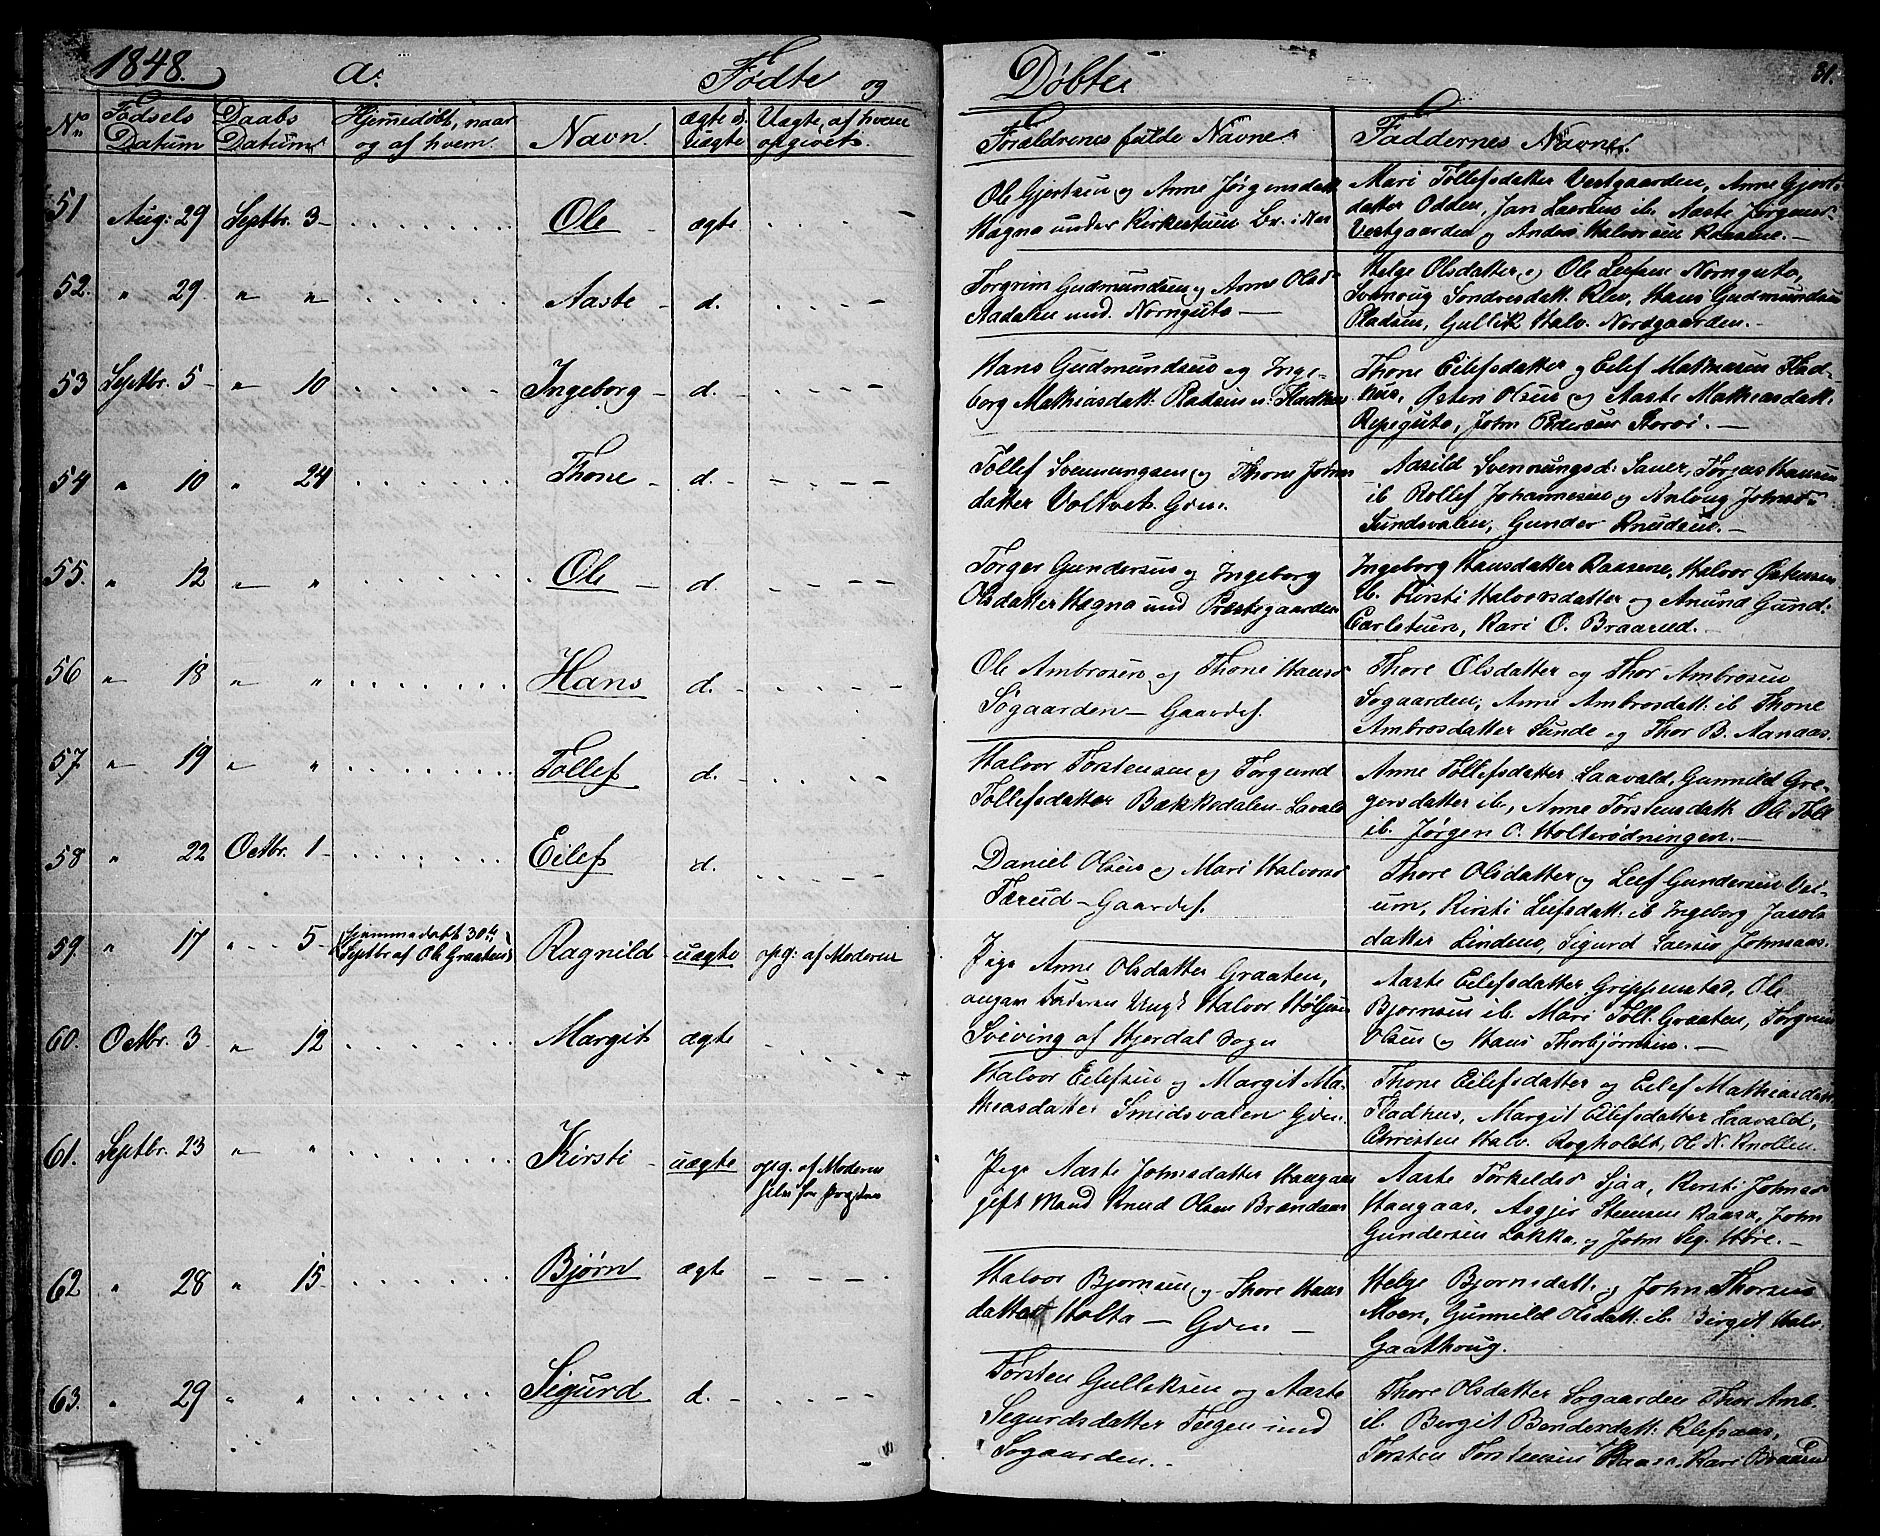 1848. a: Fødte og Døbte 31.
No. Fødsels Datum Daabs Datum Hjemmedøbt, naar og af hvem. Navn. ægte el. Uægte Uægte, af hvem opgivet. Forældrenes fulde Navne. Faddernes Navne.
51 Aug: 29 Septbr. 3 Ole ægte
Ole Gjertsen og Anne Jørgensdatt
Hagna under Kirkestuen
Mari Tollefsdatter Vestgaarden, Anne Gjerts
datter Odden, Jan Laersen ib. Aaste Jørgens
Vestgaarden og Anders Halvorsen Raasene.
52. " 29 " " Aaste d.
Torgrim Gudmundsen og Anne Olsd
Aadalen und. Nornguto
Helge Olsdatter og Ole Leefsen Nornguto,
Svenoug Sondresdatt. Klev, Hans Gudmundsen
Pladsen, Gullik Halv. Nordgaarden.
53 Septbr. 5 " 10 Ingeborg d.
Hans Gudmundsen og Inge-
borg Mathiasdatt: Pladsen u: Fladhus
Thone Eilefsdatter og Eilef Mathiasen Flad-
hus, Østen Olsen og Aaste Mathiasdatt:
Repeguto, John Pedersen Storøi.
54 " 10 " 24 Thone d.
Tollef Svennungsen og Thone Johns
datter Voltvet. Gden.
Aasild Svennungsd: Sauer, Torjus Hansen
ib Rollef Johannesen og Anloug Johnsd
Sundsvalen, Gunder Knudsen.
55. " 12 " " Ole d.
Torger Gundersen og Ingeborg
Olsdatter Hagna und Præstegaarden
Ingeborg Hansdatter Raasene, Halvor
ib. Kirsti Halvorsdatter og Anund Gund:
Carlstuen, Kari O. Braarud.
56 " 18 " " Hans d.
Ole Ambrosen og Thone Hansd
Søgaarden - Gaardef.
Thore Olsdatter og Thor Ambrosen
Søgaarden, Anne Ambrosdatt: ib Thone
Ambrosdatter Sunde og Thor B. Aanaas.
57 " 19 " " Tollef d.
Halvor Torstensen og Torgund
Tollefsdatter Bækkedalen Lavald
Anne Tollefsdatter Laavald, Gunnild Gre-
gersdatter ib, Anne Torstensdatt: Ole Toll
ib. Jørgen O. Holterødningen.
58 " 22 Octbr. 1 Eilef d.
Daniel Olsen og Mari Halvorsd
Tærud - Gaardef.
Thore Olsdatter og Leef Gundersen
Kirsti Leifsdatt: ib Ingeborg Jacobs
datter Linden, Sigurd Laersen Johnsaas.
59. " 17 " 5 (Hjemmedøbt 30te Septbr af Ole Graaten) Ragnild uægte opg: af Moderen
Pige Anne Olsdatter Graaten,
angav Faderen Ungk. Halvor
Sviving af Hjerdal Sogn
Aaste Eilefsdatter Grippenstad, Ole
Bjornsen ib. Mari Toll. Graaten, Torgrim
Olsen og Hans Thorbjørnsen.
60. Octbr. 3 " 12 Margit ægte
Halvor Eilefsen og Margit Ma-
thiasdatter Smidsvalen Gden.
Thone Eilefsdatter og Eilef Mathiasen
Fladhus, Margit Eilefsdatter Laavald,
Christen Halv. Rogholdt, Ole N. Knollen.
61. Septbr. 23 " " Kirsti uægte opg. af Moderen
Pige Aaste Johnsdatter Haugaas
gift Mand Knud Olsen Brændaas
Aaste Torkelsd Sjaa, Kirsti Johnsd
Haugaas, Asgjer Steensen Raasa, John
Gundersen Løkka, og John Seg. Høre.
62 " 28 " 15 Bjørn ægte
Halvor Bjornsen og Thore Hans
datter Holta - Gden
Helge Bjornsdatt: og John Thorsen
Moen, Gunnild Olsdatt: ib. Birgit Halv.
Gaathoug.
63. " 29 " " Sigurd d.
Tørsten Gulleksen og Aaste
Segurdsdatter Teigen und
Søgaarden.
Thore Olsdatter Søgaarden Thor Amb.
ib. Bergit Bendersdatt: Klefsaas,
Torsten Torstensen Raase, Kari Braarud